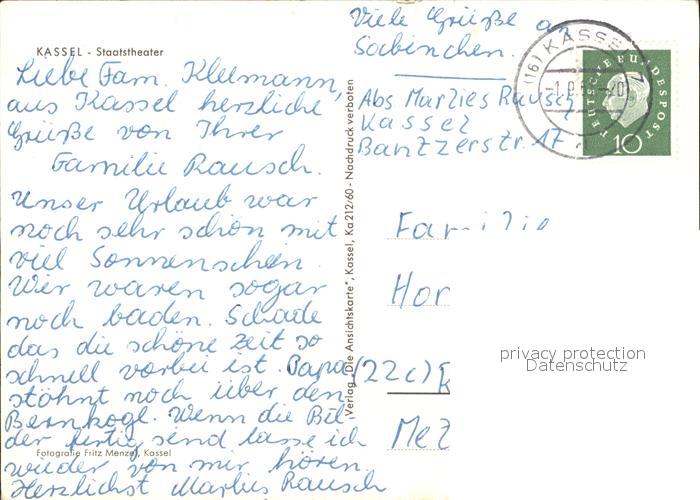 KASSEL - Staatstheater
Liebe Fam. Kleemann,
aus Kassel herzliche
Grüße von Ihrer
Familie Rausch.
Unser Urlaub war
noch sehr schön mit
viel Sonnenschein.
Wir waren sogar
noch baden. Schade
das die schöne Zeit so
schnell vorbei ist. Papa
stöhnt noch über den
Bernkogl. Wenn die Bil-
der fertig sind lasse ich
wieder von mir hören.
Herzlichst Marlies Rausch
Fotografie Fritz Menzel, Kassel
Verlag „Die Ansichtskarte", Kassel, Ka 212/60 - Nachdruck verboten
Viele Grüße an
Sabinchen.
Abs Marlies Rausch
Kassel
Bantzerstr. 17
(16) KASSEL
DEUTSCHE BUNDESPOST
10
Familie
Hor
(22c)
Me
privacy protection
Datenschutz